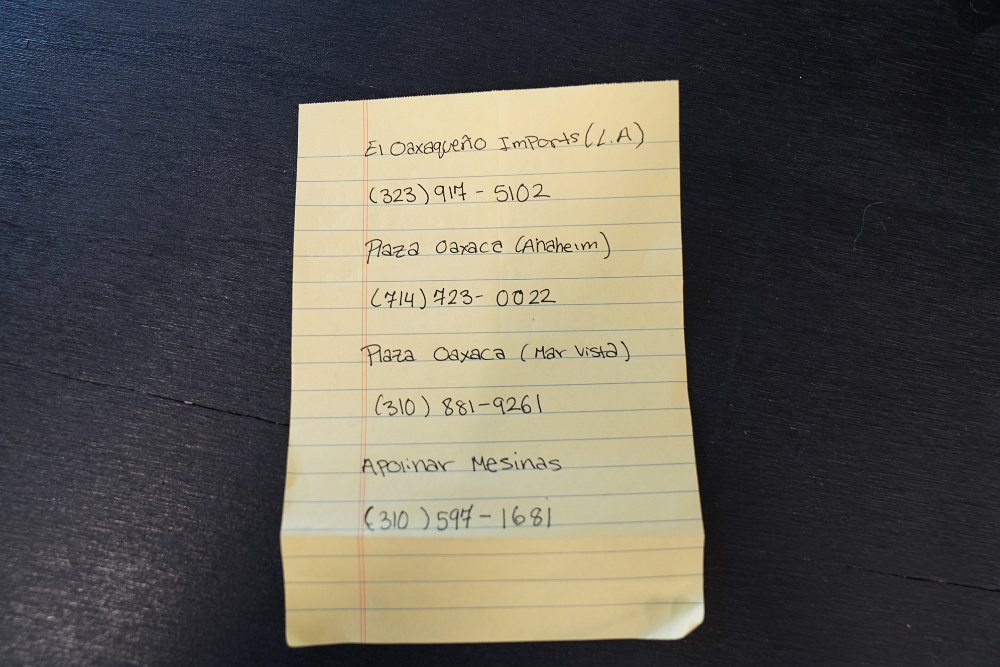 El Oaxaqueño Imports (L.A)
(323) 917 - 5102
Plaza Oaxaca (Anaheim)
(714) 723 - 0022
Plaza Oaxaca (Mar Vista)
(310) 881-9261
Apolinar Mesinas
(310) 597-1681